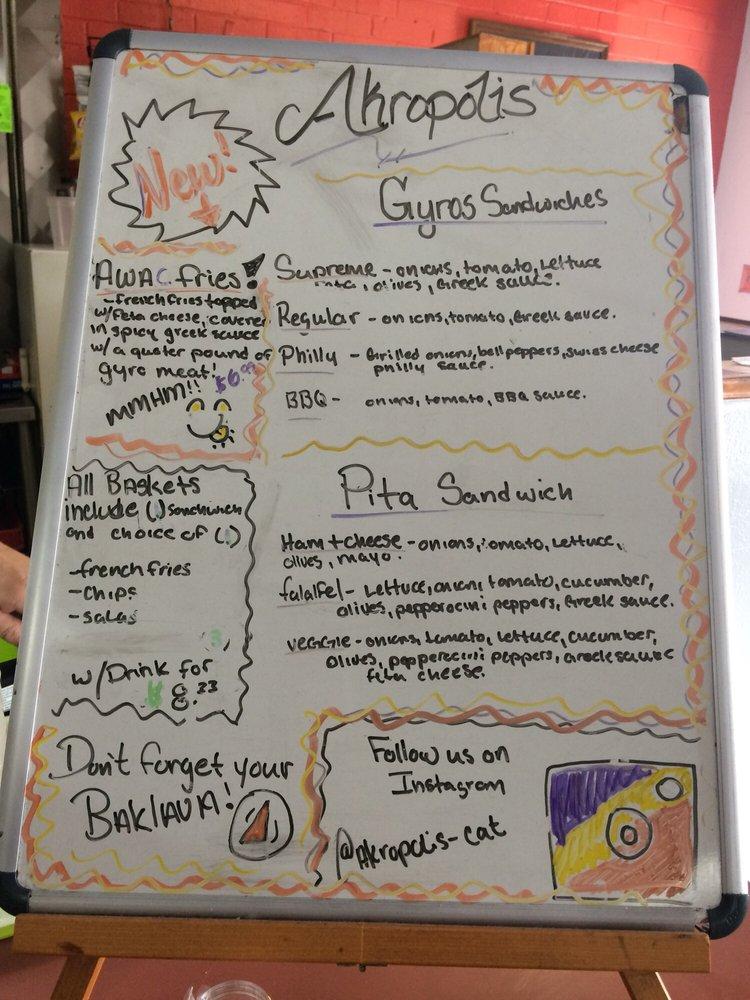 Akropolis
New!
Gyros Sandwiches
AWAC fries!
~french fries topped
w/Feta cheese, covered
in spicy greek sauce
w/a quater pound of
gyro meat! $6.99
MMHM!!
Supreme - onions, tomato, lettuce
olives, Greek sauce.
Regular - onions, tomato, Greek sauce.
Philly - Grilled onions, bell peppers, swiss cheese
philly sauce.
BBQ - onions, tomato, BBQ sauce.
All Baskets
include (1) Sandwich
and choice of (1)
-french fries
-chips
-salas
w/Drink for
$8.33
Pita Sandwich
Ham + cheese - onions, tomato, lettuce,
olives, mayo.
falalfel - Lettuce, onion, tomato, cucumber,
olives, pepperocini peppers, Greek sauce.
veggie - onions, tomato, lettuce, cucumber,
olives, pepperocini peppers, Greek sauce
feta cheese.
Don't forget your
BAKlAVA!
Follow us on
Instagram
@Akropolis-cat